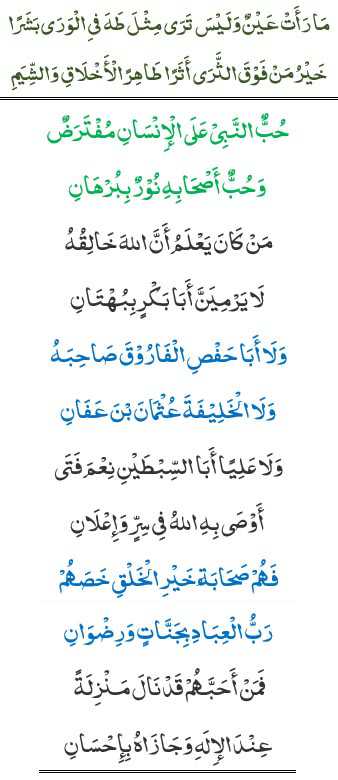 مَا رَأَتْ عَيْنٌ وَلَيْسَ تَرَى مِثْلَ طَهَ فِي الْوَرَى بَشَرًا
خَيْرُ مَنْ فَوْقَ الثَّرَى أَثَرًا طَاهِرُ الْأَخْلَاقِ وَالشِّيَمِ
حُبُّ النَّبِيْ عَلَى الْإِنْسَانِ مُفْتَرَضٌ
وَحُبُّ أَصْحَابِهِ نُوْرٌ بِبُرْهَانِ
مَنْ كَانَ يَعْلَمُ أَنَّ اللهَ خَالِقُهُ
لَا يَرْمِيَنَّ أَبَا بَكْرٍ بِبُهْتَانِ
وَلَا أَبَا حَفْصٍ الْفَارُوْقَ صَاحِبَهُ
وَلَا الْخَلِيْفَةَ عُثْمَانَ بْنَ عَفَانِ
وَلَا عَلِيًا أَبَا السِّبْطَيْنِ نِعْمَ فَتَى
أَوْصَى بِهِ اللهُ فِي سِرٍّ وَإِعْلَانِ
فَهُمْ صَحَابَة خَيْرِ الْخَلْقِ خَصَهُمْ
رَبُّ الْعِبَادِ بِجَنَّاتٍ وَرِضْوَانِ
فَمَنْ أَحَبَّهُمْ قَدْ نَالَ مَنْزِلَةً
عِنْدَ الْإِلَهِ وَجَازَاهُ بِإِحْسَانِ